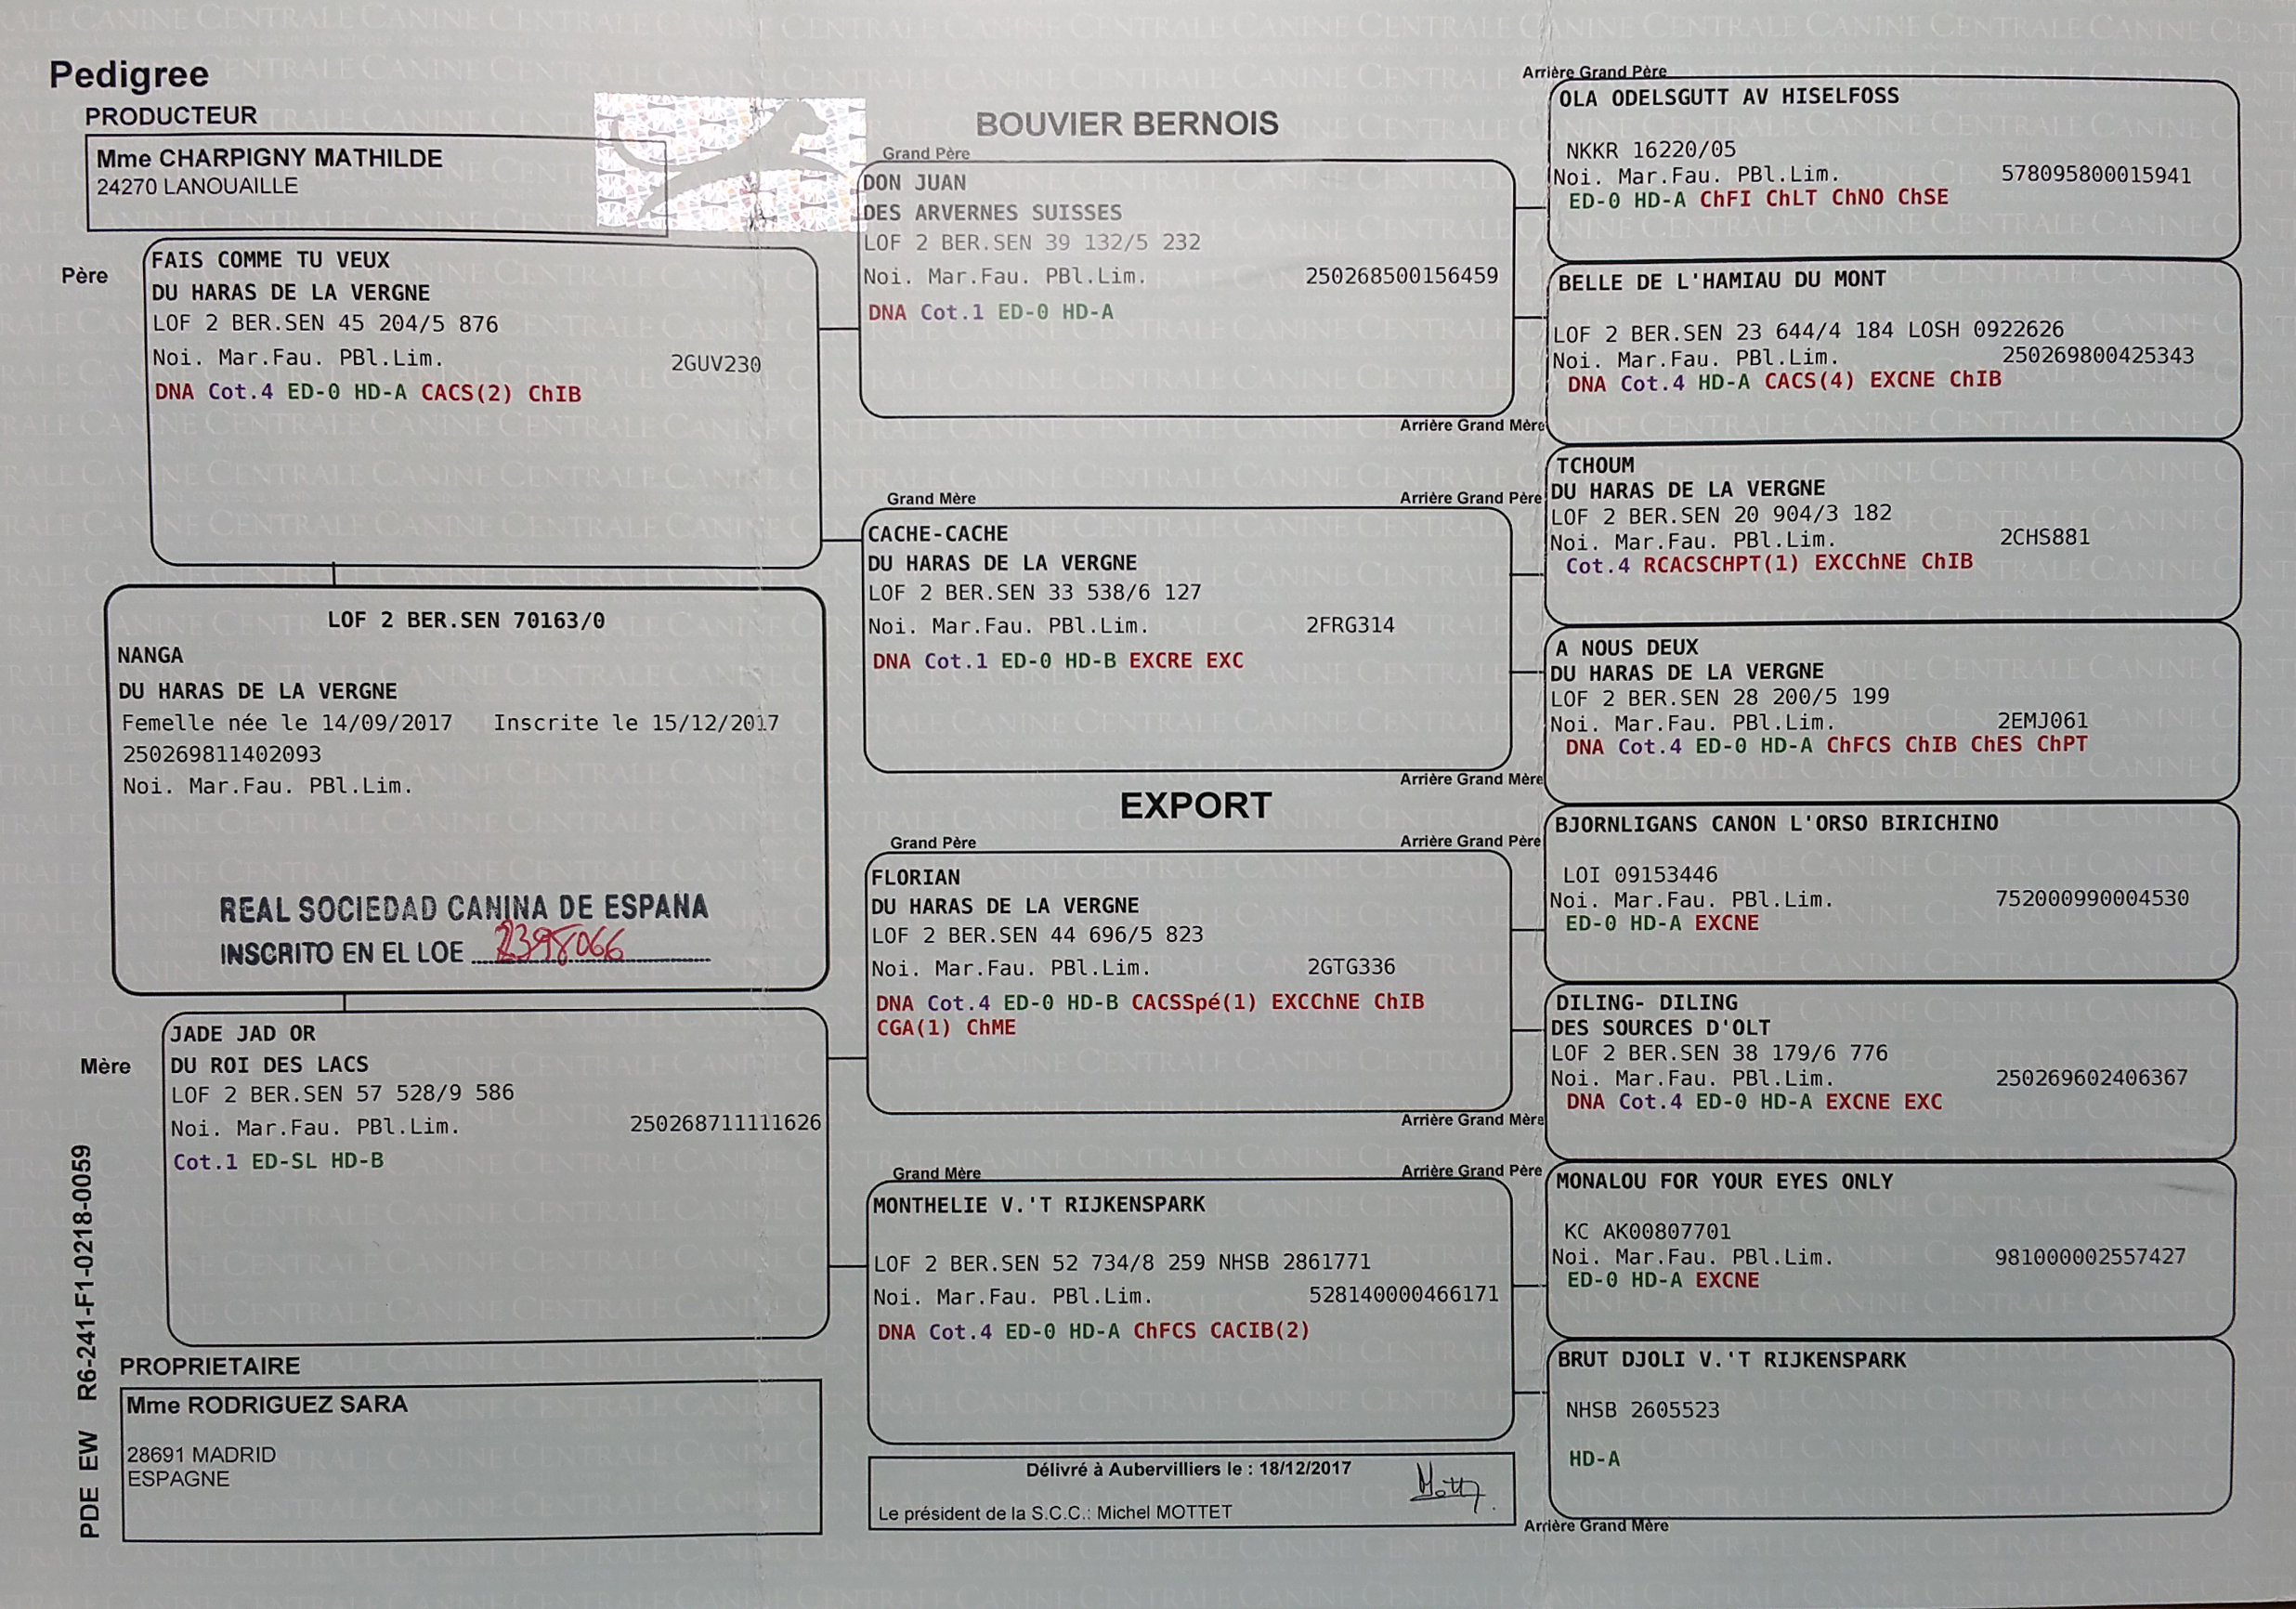 Pedigree
PRODUCTEUR
Mme CHARPIGNY MATHILDE
24270 LANOUAILLE
BOUVIER BERNOIS
Père
FAIS COMME TU VEUX
DU HARAS DE LA VERGNE
LOF 2 BER.SEN 45 204/5 876
Noi. Mar.Fau. PBl.Lim. 2GUV230
DNA Cot.4 ED-0 HD-A CACS(2) ChIB
LOF 2 BER.SEN 70163/0
NANGA
DU HARAS DE LA VERGNE
Femelle née le 14/09/2017 Inscrite le 15/12/2017
250269811402093
Noi. Mar.Fau. PBl.Lim.
REAL SOCIEDAD CANINA DE ESPAÑA
INSCRITO EN EL LOE 2398066
Mère
JADE JAD OR
DU ROI DES LACS
LOF 2 BER.SEN 57 528/9 586
Noi. Mar.Fau. PBl.Lim. 250268711111626
Cot.1 ED-SL HD-B
PROPRIETAIRE
Mme RODRIGUEZ SARA
28691 MADRID
ESPAGNE
PDE EW R6-241-F1-0218-0059
Grand Père
DON JUAN
DES ARVERNES SUISSES
LOF 2 BER.SEN 39 132/5 232
Noi. Mar.Fau. PBl.Lim. 250268500156459
DNA Cot.1 ED-0 HD-A
Grand Mère
CACHE-CACHE
DU HARAS DE LA VERGNE
LOF 2 BER.SEN 33 538/6 127
Noi. Mar.Fau. PBl.Lim. 2FRG314
DNA Cot.1 ED-0 HD-B EXCRE EXC
EXPORT
Grand Père
FLORIAN
DU HARAS DE LA VERGNE
LOF 2 BER.SEN 44 696/5 823
Noi. Mar.Fau. PBl.Lim. 2GTG336
DNA Cot.4 ED-0 HD-B CACSSpé(1) EXCChNE ChIB
CGA(1) ChME
Grand Mère
MONTHELIE V.'T RIJKENSPARK
LOF 2 BER.SEN 52 734/8 259 NHSB 2861771
Noi. Mar.Fau. PBl.Lim. 528140000466171
DNA Cot.4 ED-0 HD-A ChFCS CACIB(2)
Délivré à Aubervilliers le : 18/12/2017
Le président de la S.C.C.: Michel MOTTET
Arrière Grand Père
OLA ODELSGUTT AV HISELFOSS
NKKR 16220/05
Noi. Mar.Fau. PBl.Lim. 578095800015941
ED-0 HD-A ChFI ChLT ChNO ChSE
BELLE DE L'HAMIAU DU MONT
LOF 2 BER.SEN 23 644/4 184 LOSH 0922626
Noi. Mar.Fau. PBl.Lim. 250269800425343
DNA Cot.4 HD-A CACS(4) EXCNE ChIB
Arrière Grand Mère
Arrière Grand Père
TCHOUM
DU HARAS DE LA VERGNE
LOF 2 BER.SEN 20 904/3 182
Noi. Mar.Fau. PBl.Lim. 2CHS881
Cot.4 RCACSCHPT(1) EXCChNE ChIB
A NOUS DEUX
DU HARAS DE LA VERGNE
LOF 2 BER.SEN 28 200/5 199
Noi. Mar.Fau. PBl.Lim. 2EMJ061
DNA Cot.4 ED-0 HD-A ChFCS ChIB ChES ChPT
Arrière Grand Mère
Arrière Grand Père
BJORNLIGANS CANON L'ORSO BIRICHINO
LOI 09153446
Noi. Mar.Fau. PBl.Lim. 752000990004530
ED-0 HD-A EXCNE
DILING- DILING
DES SOURCES D'OLT
LOF 2 BER.SEN 38 179/6 776
Noi. Mar.Fau. PBl.Lim. 250269602406367
DNA Cot.4 ED-0 HD-A EXCNE EXC
Arrière Grand Mère
Arrière Grand Père
MONALOU FOR YOUR EYES ONLY
KC AK00807701
Noi. Mar.Fau. PBl.Lim. 981000002557427
ED-0 HD-A EXCNE
BRUT DJOLI V.'T RIJKENSPARK
NHSB 2605523
HD-A
Arrière Grand Mère